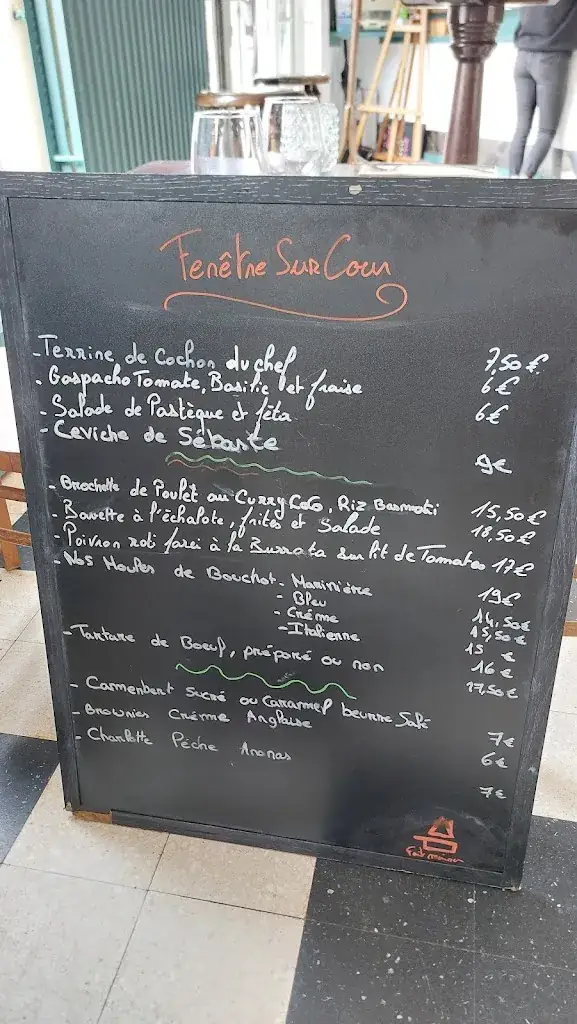 Fenêtre Sur Cour
- Terrine de Cochon du chef 7,50 €
- Gaspacho Tomate, Basilic et fraise 6 €
- Salade de Pastèque et féta 6 €
- Ceviche de Sébaste 9 €
- Brochette de Poulet au Curry Coco, Riz Basmati 15,50 €
- Bavette à l'échalote, frites et Salade 18,50 €
- Poivron roti farci à la Burrata sur lit de Tomates 17 €
19 €
- Nos Moules de Bouchot - Marinière 14,50 €
- Bleu 15,50 €
- Créme 15 €
- Italienne 16 €
- Tartare de Boeuf, préparé ou non 17,50 €
- Camembert Sucré ou Caramel beurre Salé 7 €
- Brownies Crème Anglaise 6 €
- Charlotte Pêche Ananas 7 €
Fait maison